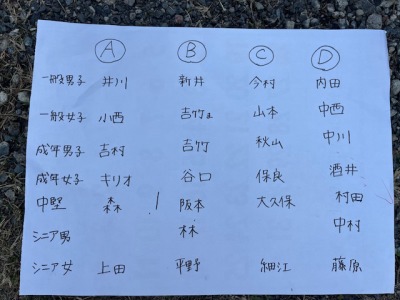 Ⓐ Ⓑ Ⓒ Ⓓ
一般男子 井川 新井 今村 内田
一般女子 小西 吉竹ま 山本 中西
成年男子 吉村 吉竹 秋山 中川
成年女子 キリオ 谷口 保良 酒井
中堅 森 阪本 大久保 村田
シニア男 林 中村
シニア女 上田 平野 細江 藤原